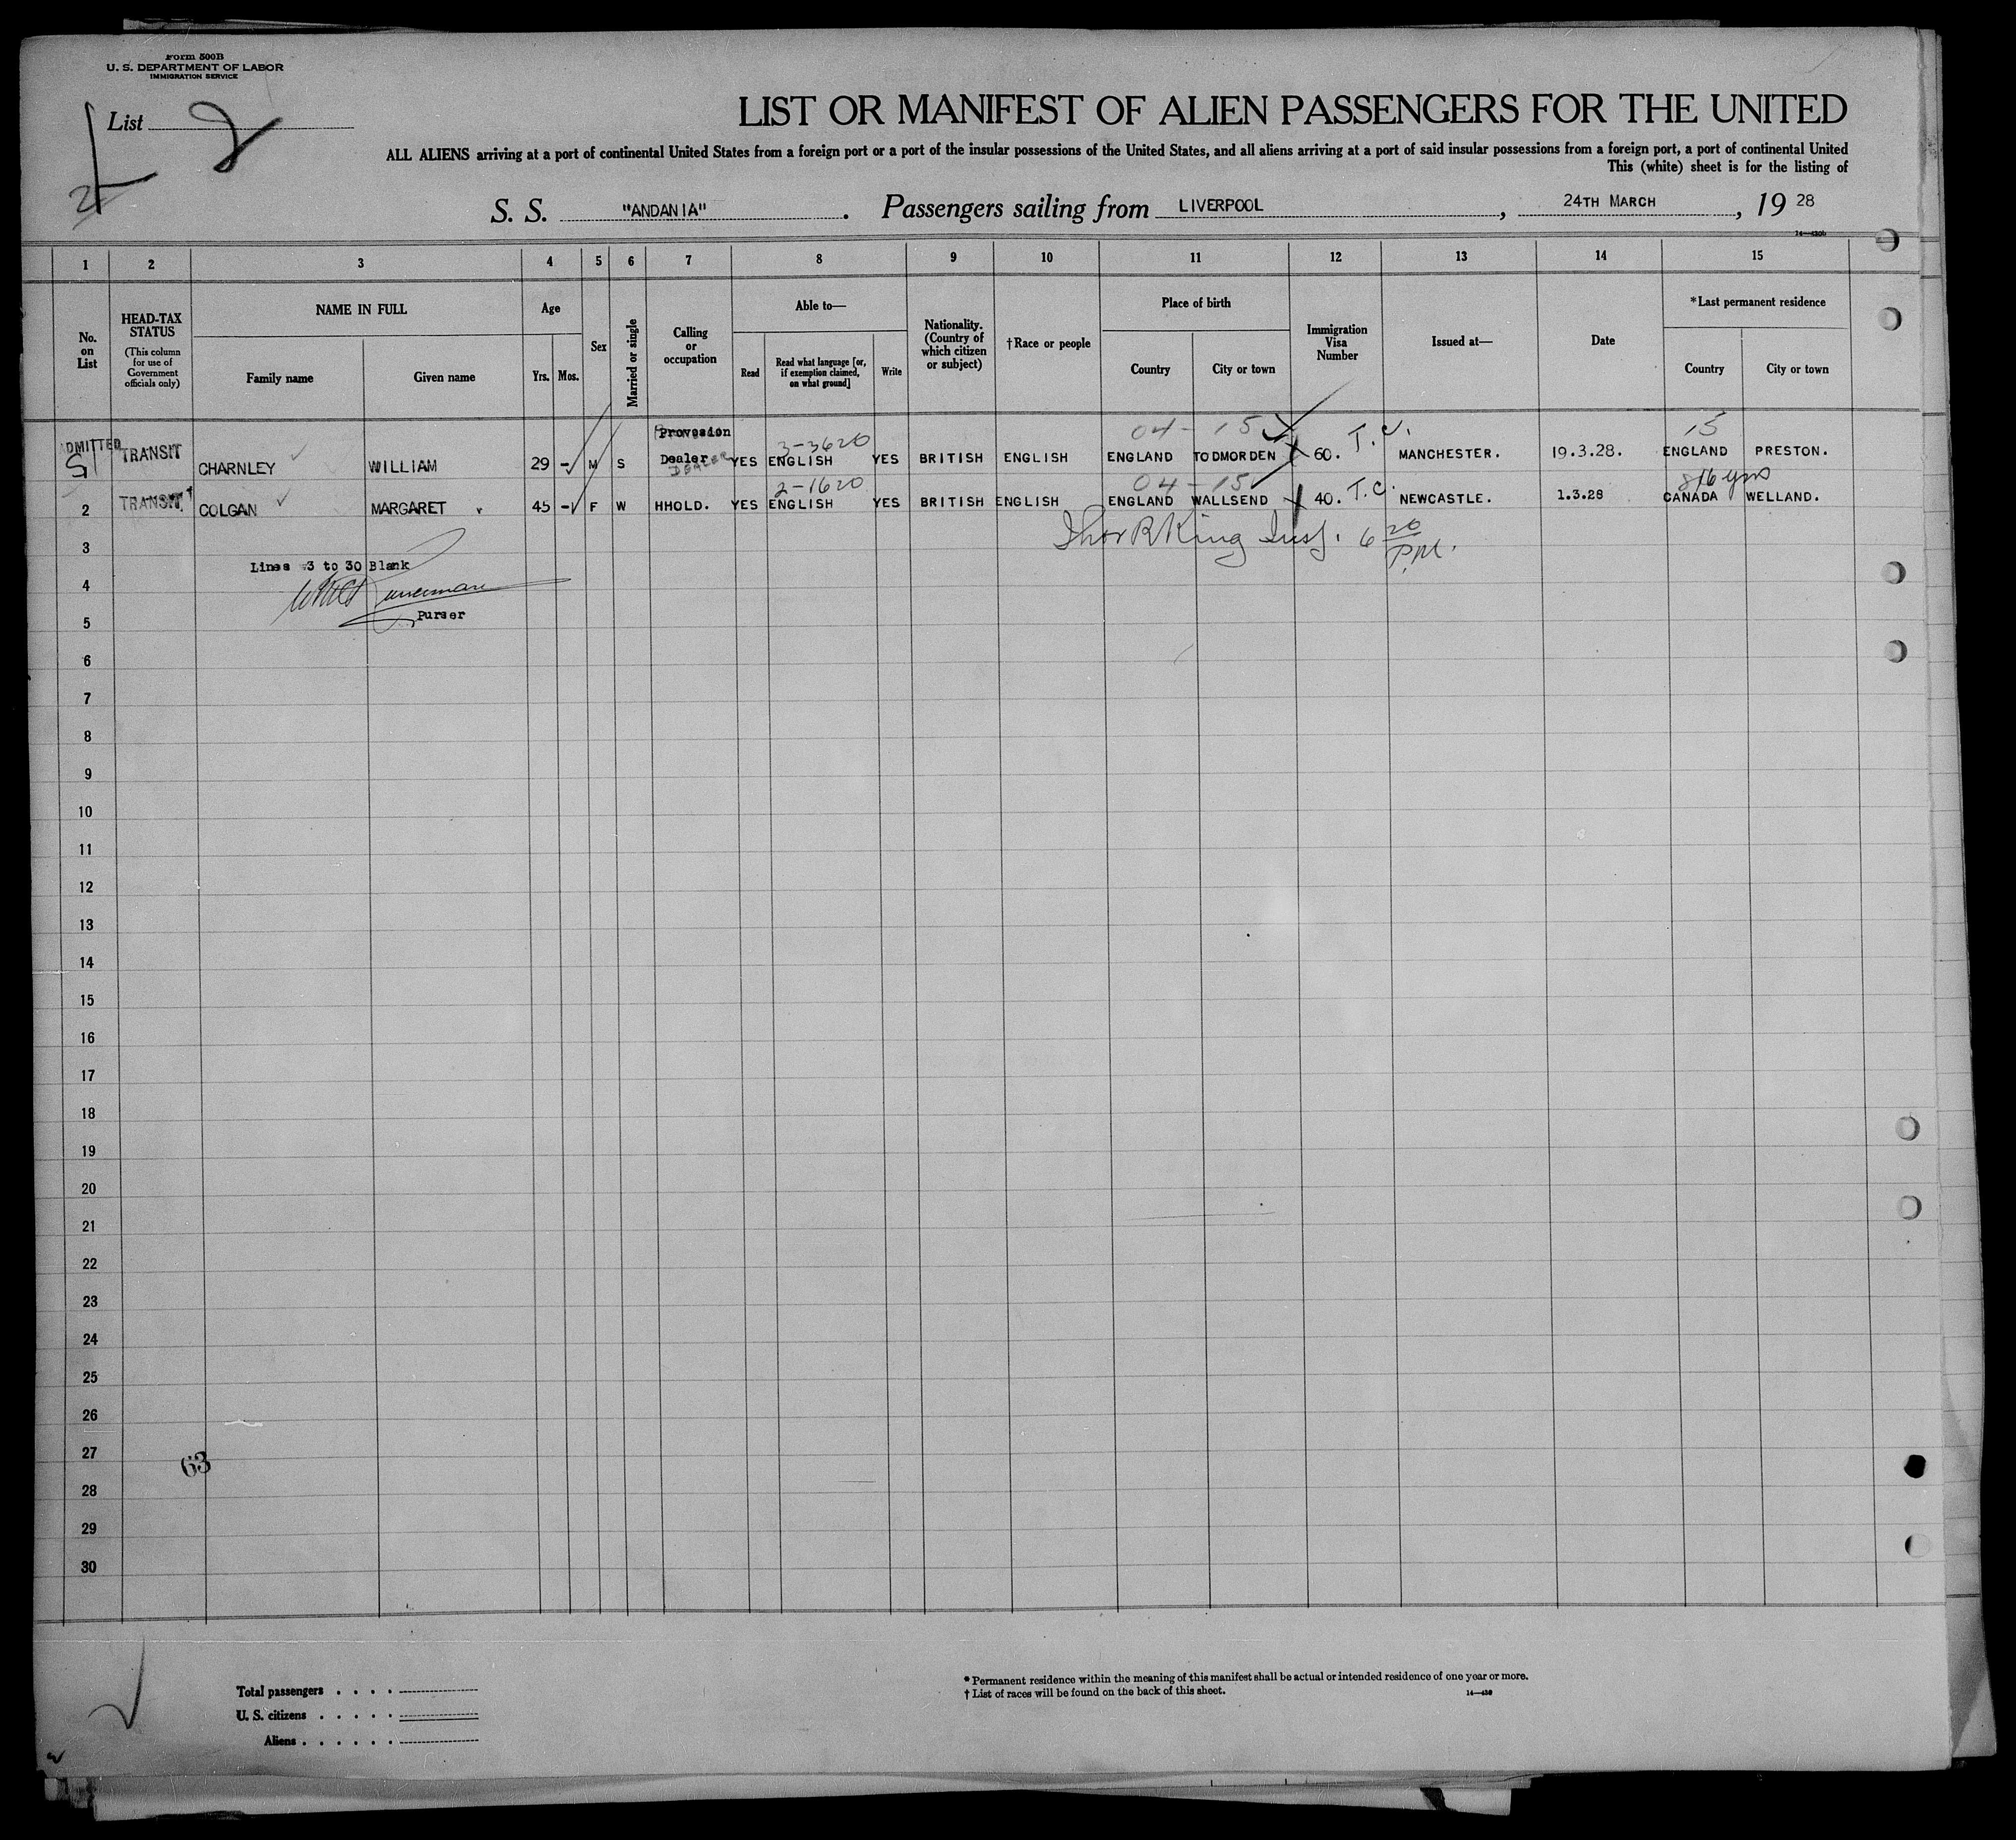 Form 500B
U. S. DEPARTMENT OF LABOR
IMMIGRATION SERVICE
List 2
2
LIST OR MANIFEST OF ALIEN PASSENGERS FOR THE UNITED
ALL ALIENS arriving at a port of continental United States from a foreign port or a port of the insular possessions of the United States, and all aliens arriving at a port of said insular possessions from a foreign port, a port of continental United
This (white) sheet is for the listing of
S. S. "ANDANIA". Passengers sailing from LIVERPOOL, 24TH MARCH, 19 28
1 2 3 4 5 6 7 8 9 10 11 12 13 14 15
No. on List
HEAD-TAX STATUS (This column for use of Government officials only)
NAME IN FULL
Family name Given name
Age
Yrs. Mos.
Sex
Married or single
Calling or occupation
Able to—
Read Read what language [or, if exemption claimed, on what ground] Write
Nationality. (Country of which citizen or subject)
†Race or people
Place of birth
Country City or town
Immigration Visa Number
Issued at—
Date
*Last permanent residence
Country City or town
Provosion 3-3620 04-15 T.V. 15
ADMITTED TRANSIT CHARNLEY WILLIAM 29 - M S Dealer DEALER YES ENGLISH YES BRITISH ENGLISH ENGLAND TODMORDEN 60. MANCHESTER. 19.3.28. ENGLAND PRESTON.
2-1620 04-15 T.C. 16 yrs
2 TRANSIT COLGAN MARGARET 45 - F W HHOLD. YES ENGLISH YES BRITISH ENGLISH ENGLAND WALLSEND 40. NEWCASTLE. 1.3.28 CANADA WELLAND.
3 R King Insp. 6 20 P.M.
Lines 3 to 30 Blank
4
5 Purser
6
7
8
9
10
11
12
13
14
15
16
17
18
19
20
21
22
23
24
25
26
27
63
28
29
30
Total passengers
U. S. citizens
Aliens
* Permanent residence within the meaning of this manifest shall be actual or intended residence of one year or more.
† List of races will be found on the back of this sheet.